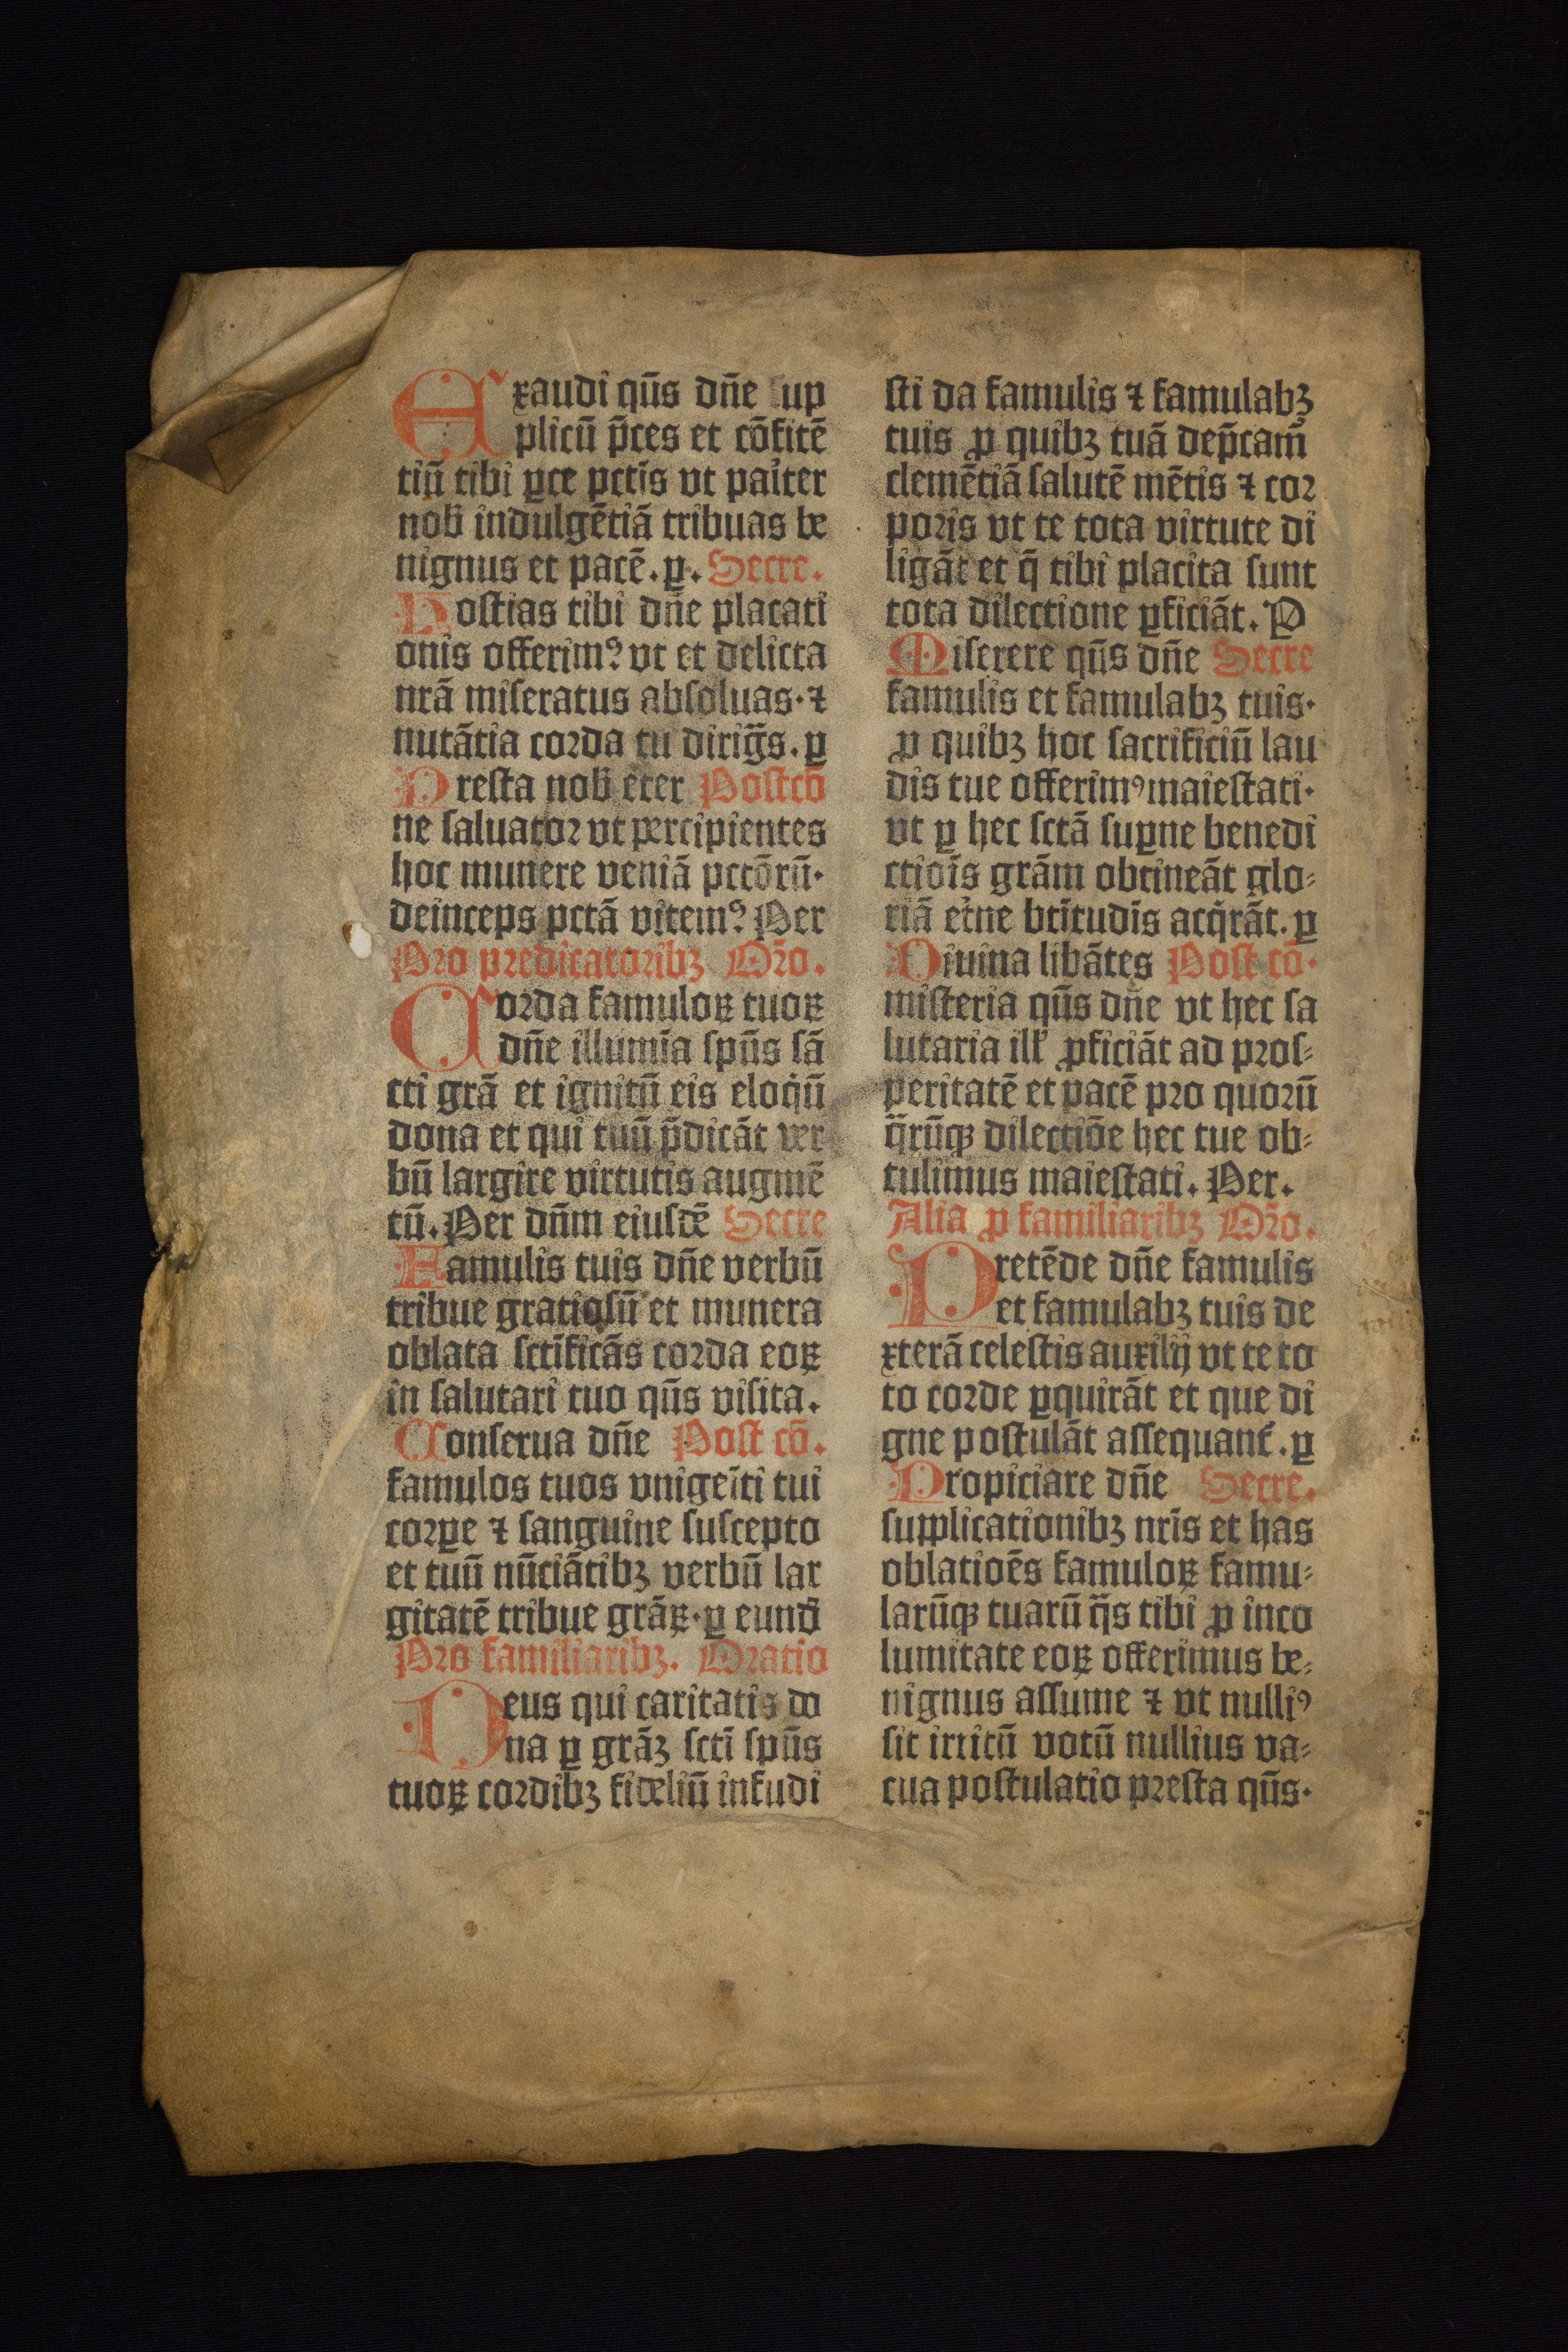 Exaudi qu̅s dn̅e sup
plicu̅ p̅ces et co̅fite̅
tiu̅ tibi ꝑce pctis̅ vt pait̾er
nob̅ indulge̅tia̅ tribuas be
nignus et pace̅. ꝑ. Secre.
Hostias tibi dn̅e placati
onis offerimꝰ vt et delicta
nra̅ miseratus absoluas· ⁊
nuta̅tia corda tu dirig̅s. ꝑ
Presta nob̅ eter Postco̅
ne saluator vt percipientes
hoc munere venia̅ pcto̅ru̅·
deinceps pcta̅ vitemꝰ Per
Pro predicatoribꝫ Or̅o.
Corda famuloꝝ tuoꝝ
dn̅e illumi̅a spu̅s sa̅
cti gra̅ et ignitu̅ eis eloq̇u̅
dona et qui tuu̅ p̅dica̅t ver
bu̅ largire virtutis augme̅
tu̅. Per dn̅m eiusde̅ Secre
Famulis tuis dn̅e verbu̅
tribue gratiosu̅ et munera
oblata scti̅fica̅s corda eoꝝ
in salutari tuo qu̅s visita.
Conserua dn̅e Post co̅.
famulos tuos vnigei̅ti tui
corꝑe ⁊ sanguine suscepto
et tuu̅ nu̅cia̅tibꝫ verbu̅ lar
gitate̅ tribue gra̅ꝝ· ꝑ eund̅
Pro familiaribꝫ. Oratio
Deus qui caritatis do
na ꝑ gra̅ꝫ scti̅ spu̅s
tuoꝝ cordibꝫ fideliu̅ infudi
sti da famulis ⁊ famulabꝫ
tuis ꝓ quibꝫ tua̅ dep̅camꝰ
cleme̅tia̅ salute̅ me̅tis ⁊ cor
poris vt te tota virtute di
liga̅t et q̅ tibi placita sunt
tota dilectione ꝑficia̅t. P
Miserere qu̅s dn̅e Secre
famulis et famulabꝫ tuis·
ꝓ quibꝫ hoc sacrificiu̅ lau
dis tue offerimꝰ maiestati·
vt ꝑ hec scta̅ suꝑne benedi
ctiois̅ gra̅m obtinea̅t glo⸗
ria̅ et̾ne bti̅tudis̅ acq̇ra̅t. ꝑ
Diuina liba̅tes Post co̅·
misteria qu̅s dn̅e vt hec sa
lutaria ill̾ ꝓficia̅t ad pros⸗
peritate̅ et pace̅ pro quoru̅
q̅ru̅qꝫ dilectio̅e hec tue ob⸗
tulimus maiestati. Per.
Alia ꝓ familiaribꝫ Or̅o.
Prete̅de dn̅e famulis
et famulabꝫ tuis de
xtera̅ celestis auxilij vt te to
to corde ꝑquira̅t et que di
gne postula̅t assequant̾. ꝑ
Propiciare dn̅e Secre.
supplicationibꝫ nris̅ et has
oblatioe̅s famuloꝝ famu⸗
laru̅qꝫ tuaru̅ q̅s tibi ꝓ inco
lumitate eoꝝ offerimus be⸗
nignus assume ⁊ vt nulliꝰ
sit irritu̅ votu̅ nullius va⸗
cua postulatio presta qu̅s·